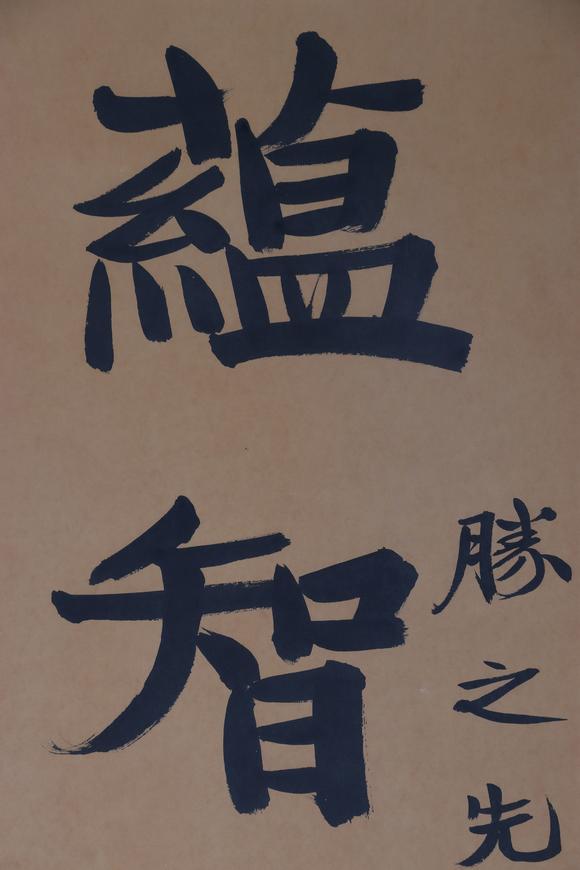 蘊智
勝之先